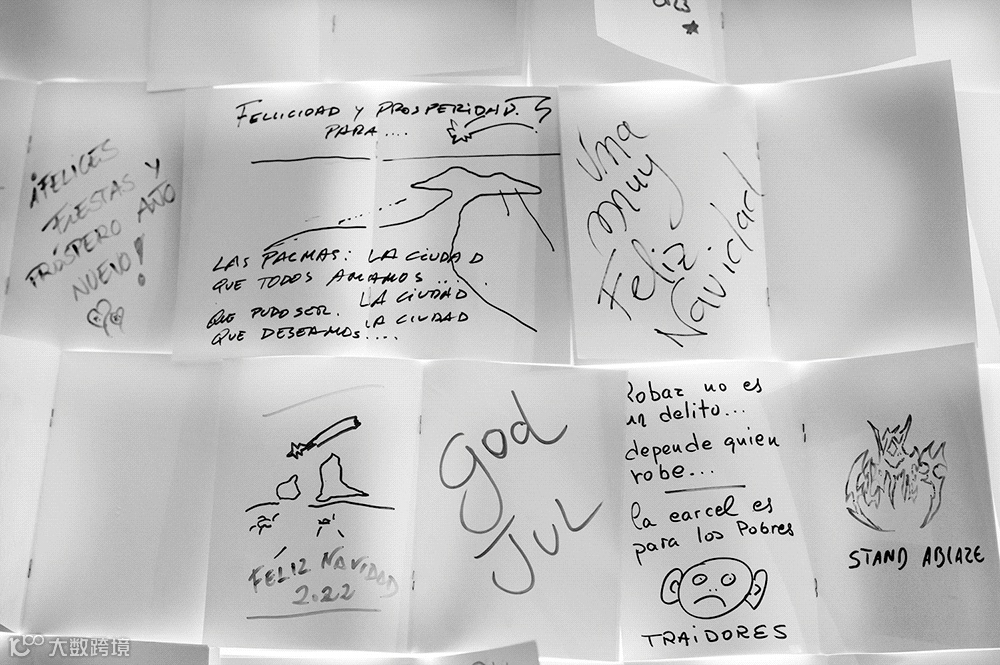 ¡FELICES
FIESTAS Y
PRÓSPERO AÑO
NUEVO!
FELLICIDAD Y PROSPERIDAD.
PARA....
LAS PALMAS: LA CIUDAD
QUE TODOS AMAMOS...
QUE PUDO SER. LA CIUDAD
QUE DESEAMOS... LA CIUDAD
Una
muy
Feliz
Navidad
FÉLIZ NAVIDAD
2.022
God
Jul
Robar no es
un delito...
depende quien
robe...
la carcel es
para los Pobres
TRAIDORES
STAND ABLAZE
大数跨境